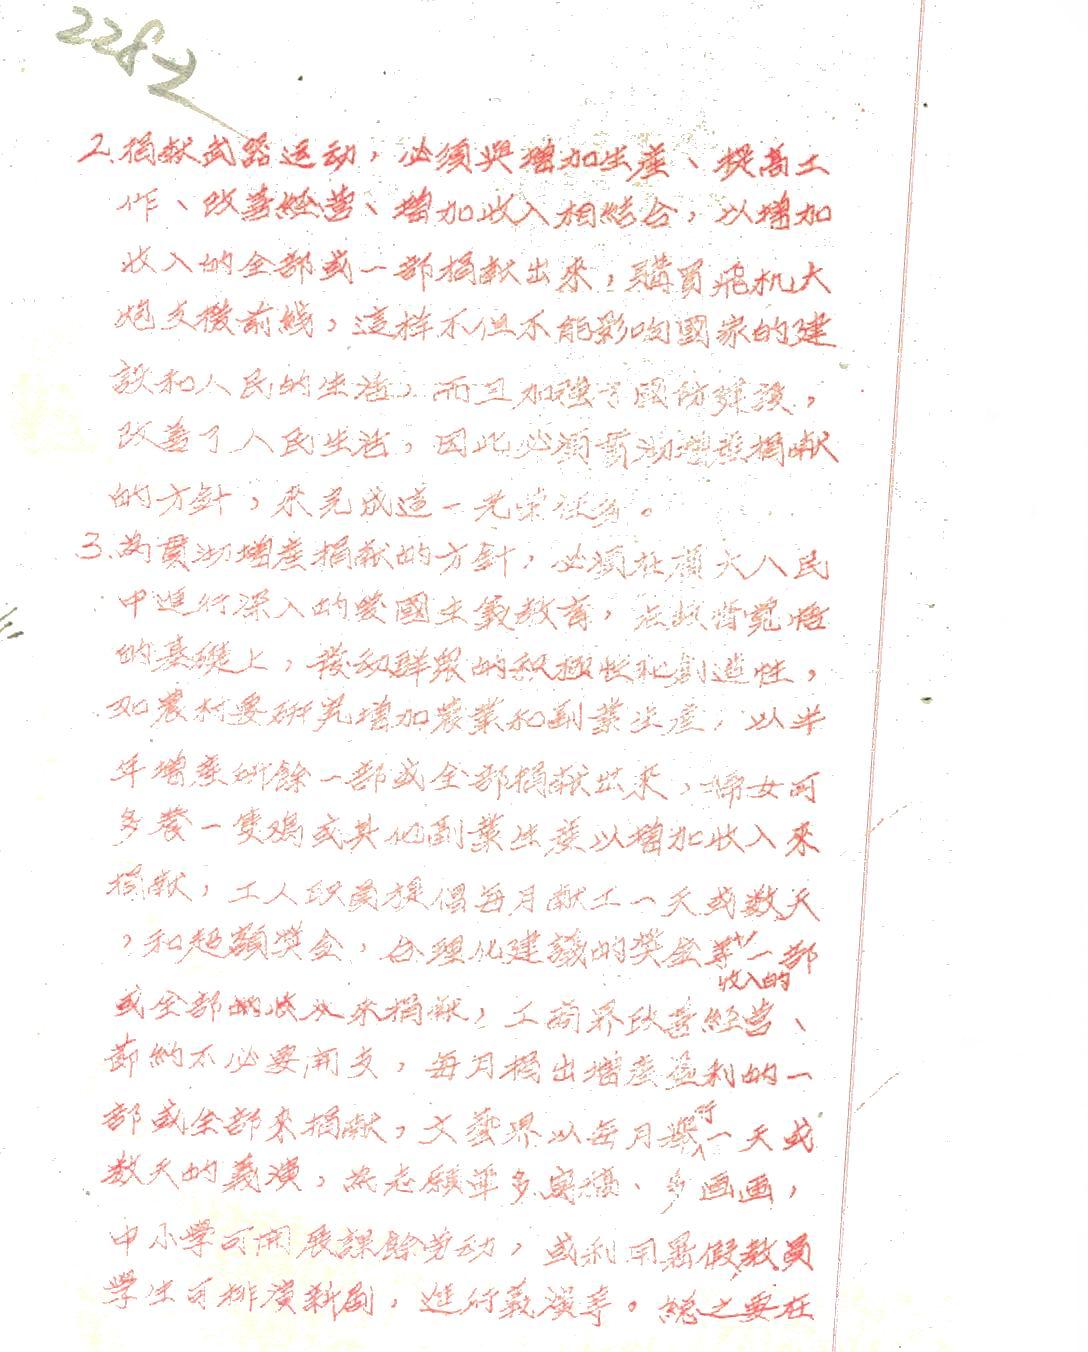 2282
2.捐献武器运动，必須與增加生產、提高工
作、改善經营、增加收入相結合，以增加
收入的全部或一部捐献出來，購買飛机大
炮支援前綫，這样不但不能影响國家的建
設和人民的生活，而且加強了國防建設，
改善了人民生活，因此必須貫沏增產捐献
的方針，來完成這一光荣任务。
3.为貫沏增產捐献的方針，必須在廣大人民
中進行深入的愛國主義教育，在政治覚悟
的基礎上，發动群衆的积極性和創造性，
如農村要研究增加農業和副業生產，以半
年增產所餘一部或全部捐献出來，婦女可
多養一隻鸡或其他副業生產以增加收入來
捐献，工人职員提倡每月献工一天或数天
，和超額獎金，合理化建議的獎金等收入的一部
或全部 來捐献，工商界改善經营、
節納不必要開支，每月捐出增產盈利的一
部或全部來捐献，文藝界以每月举行一天或
数天的義演，為志願軍多寫稿、多画画，
中小學可開展課餘劳动，或利用暑假教員
學生可排演新劇，進行義演等。総之要在